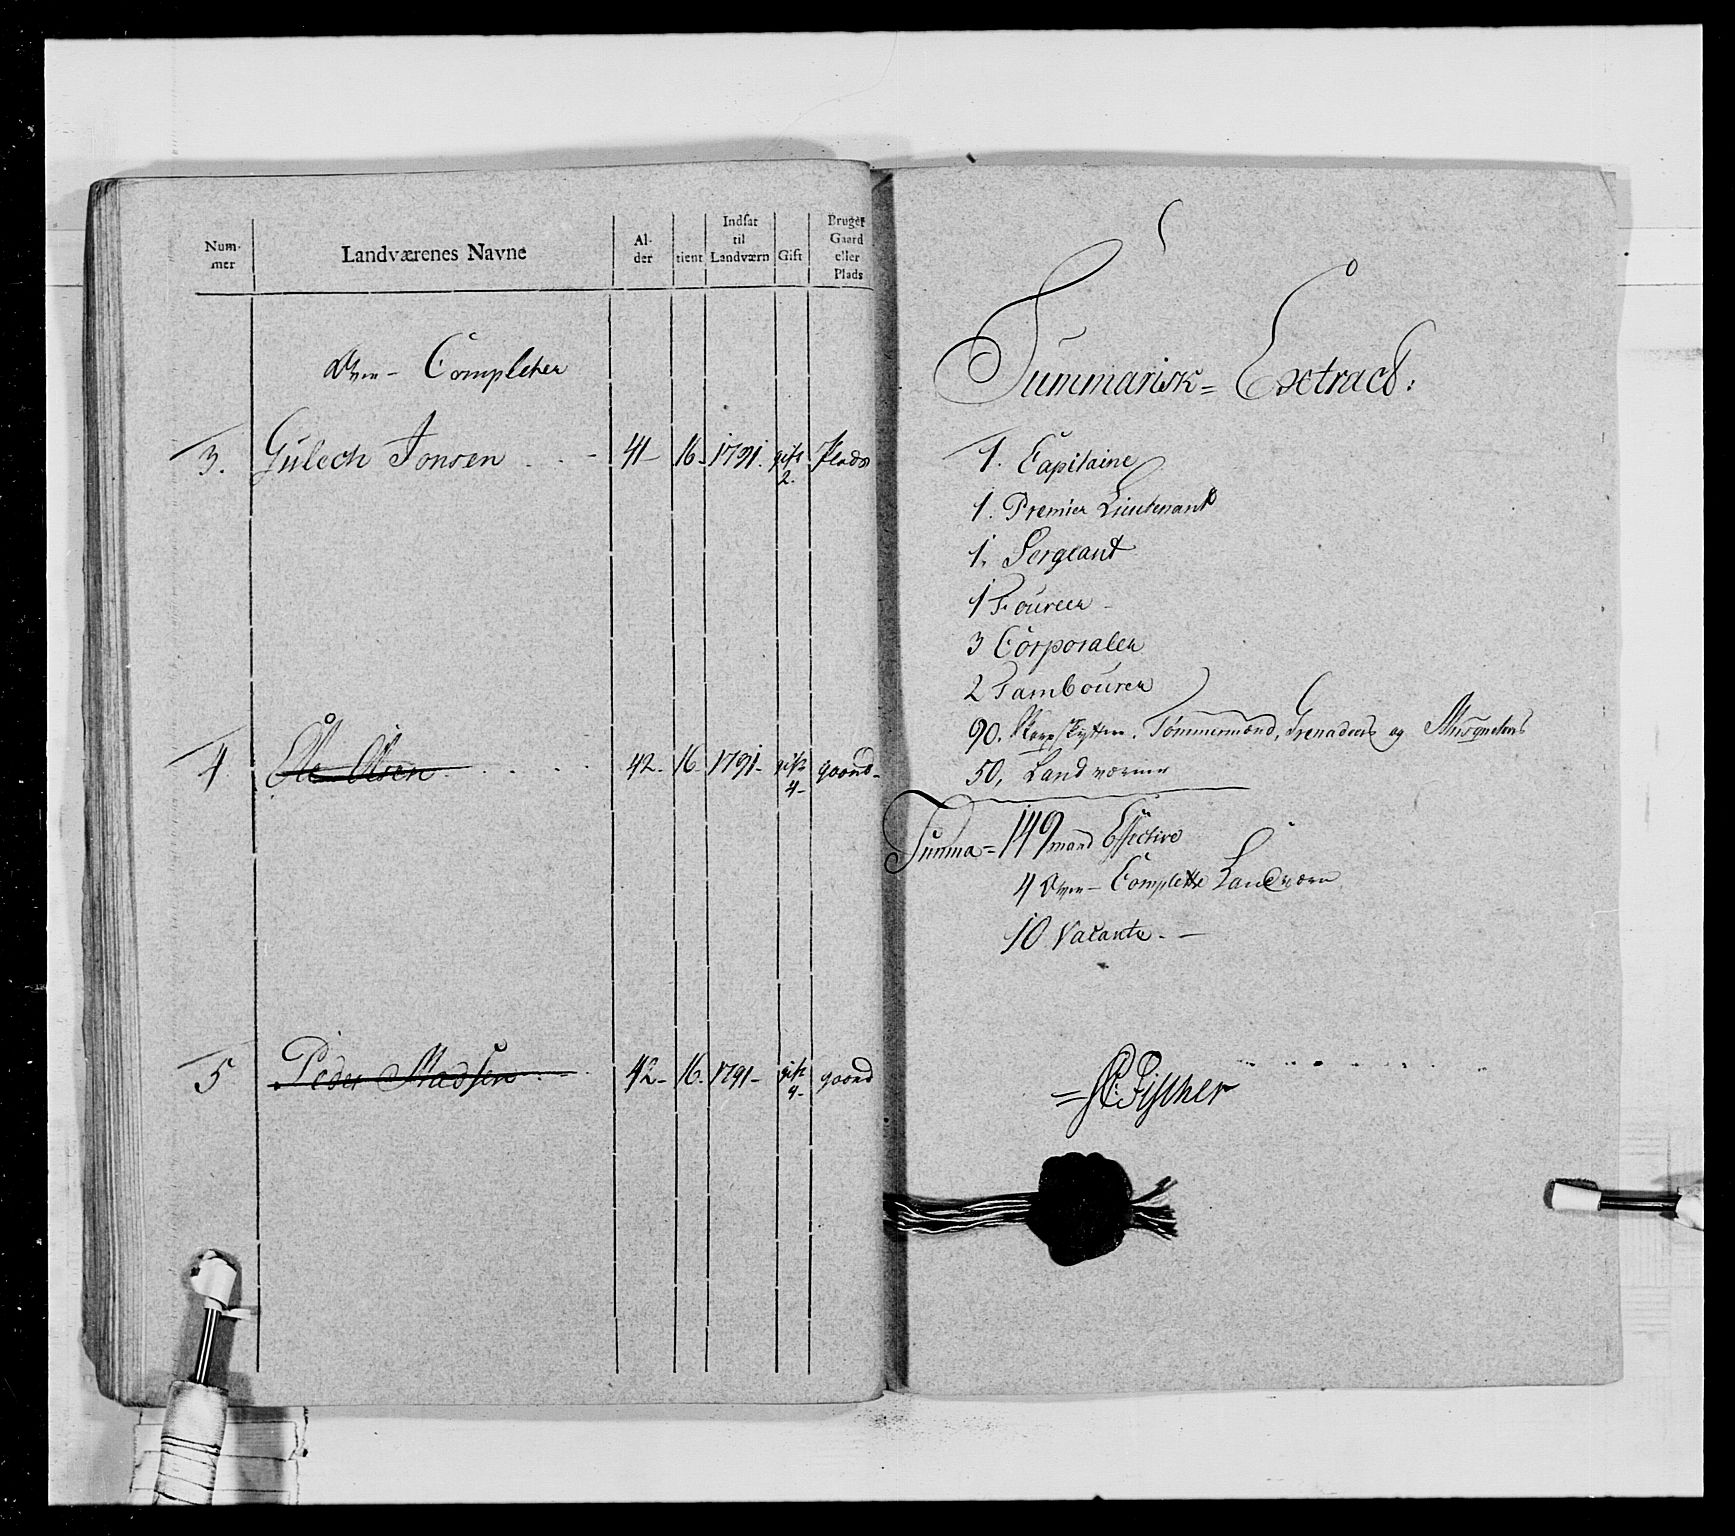 Num-mer | Landværenes Navne | Al-der | tient | Indsat til Landværn | Gift | Bruger Gaard eller Plads
Over- Completter
3. Gulech Jonsen 41 16 1791. gift 2. Plads
4. Ole Olsen 42 16 1791 gift 4 gaard
5 Peder Madsen 42 16 1791 gift 4 gaard
Summarisk= Extract:
1. Capitaine
1. Premier Lieutenant
1. Sergeant
1 Foureer
3 Corporaler
2 Tambourer
90. Skarpskyttere. Tømmermænd, Grenadeers og Musqueteers
50, Landværner
Summa= 149 mand Effective
4 Over- Complette Landværn
10 Vacante.
Fischer